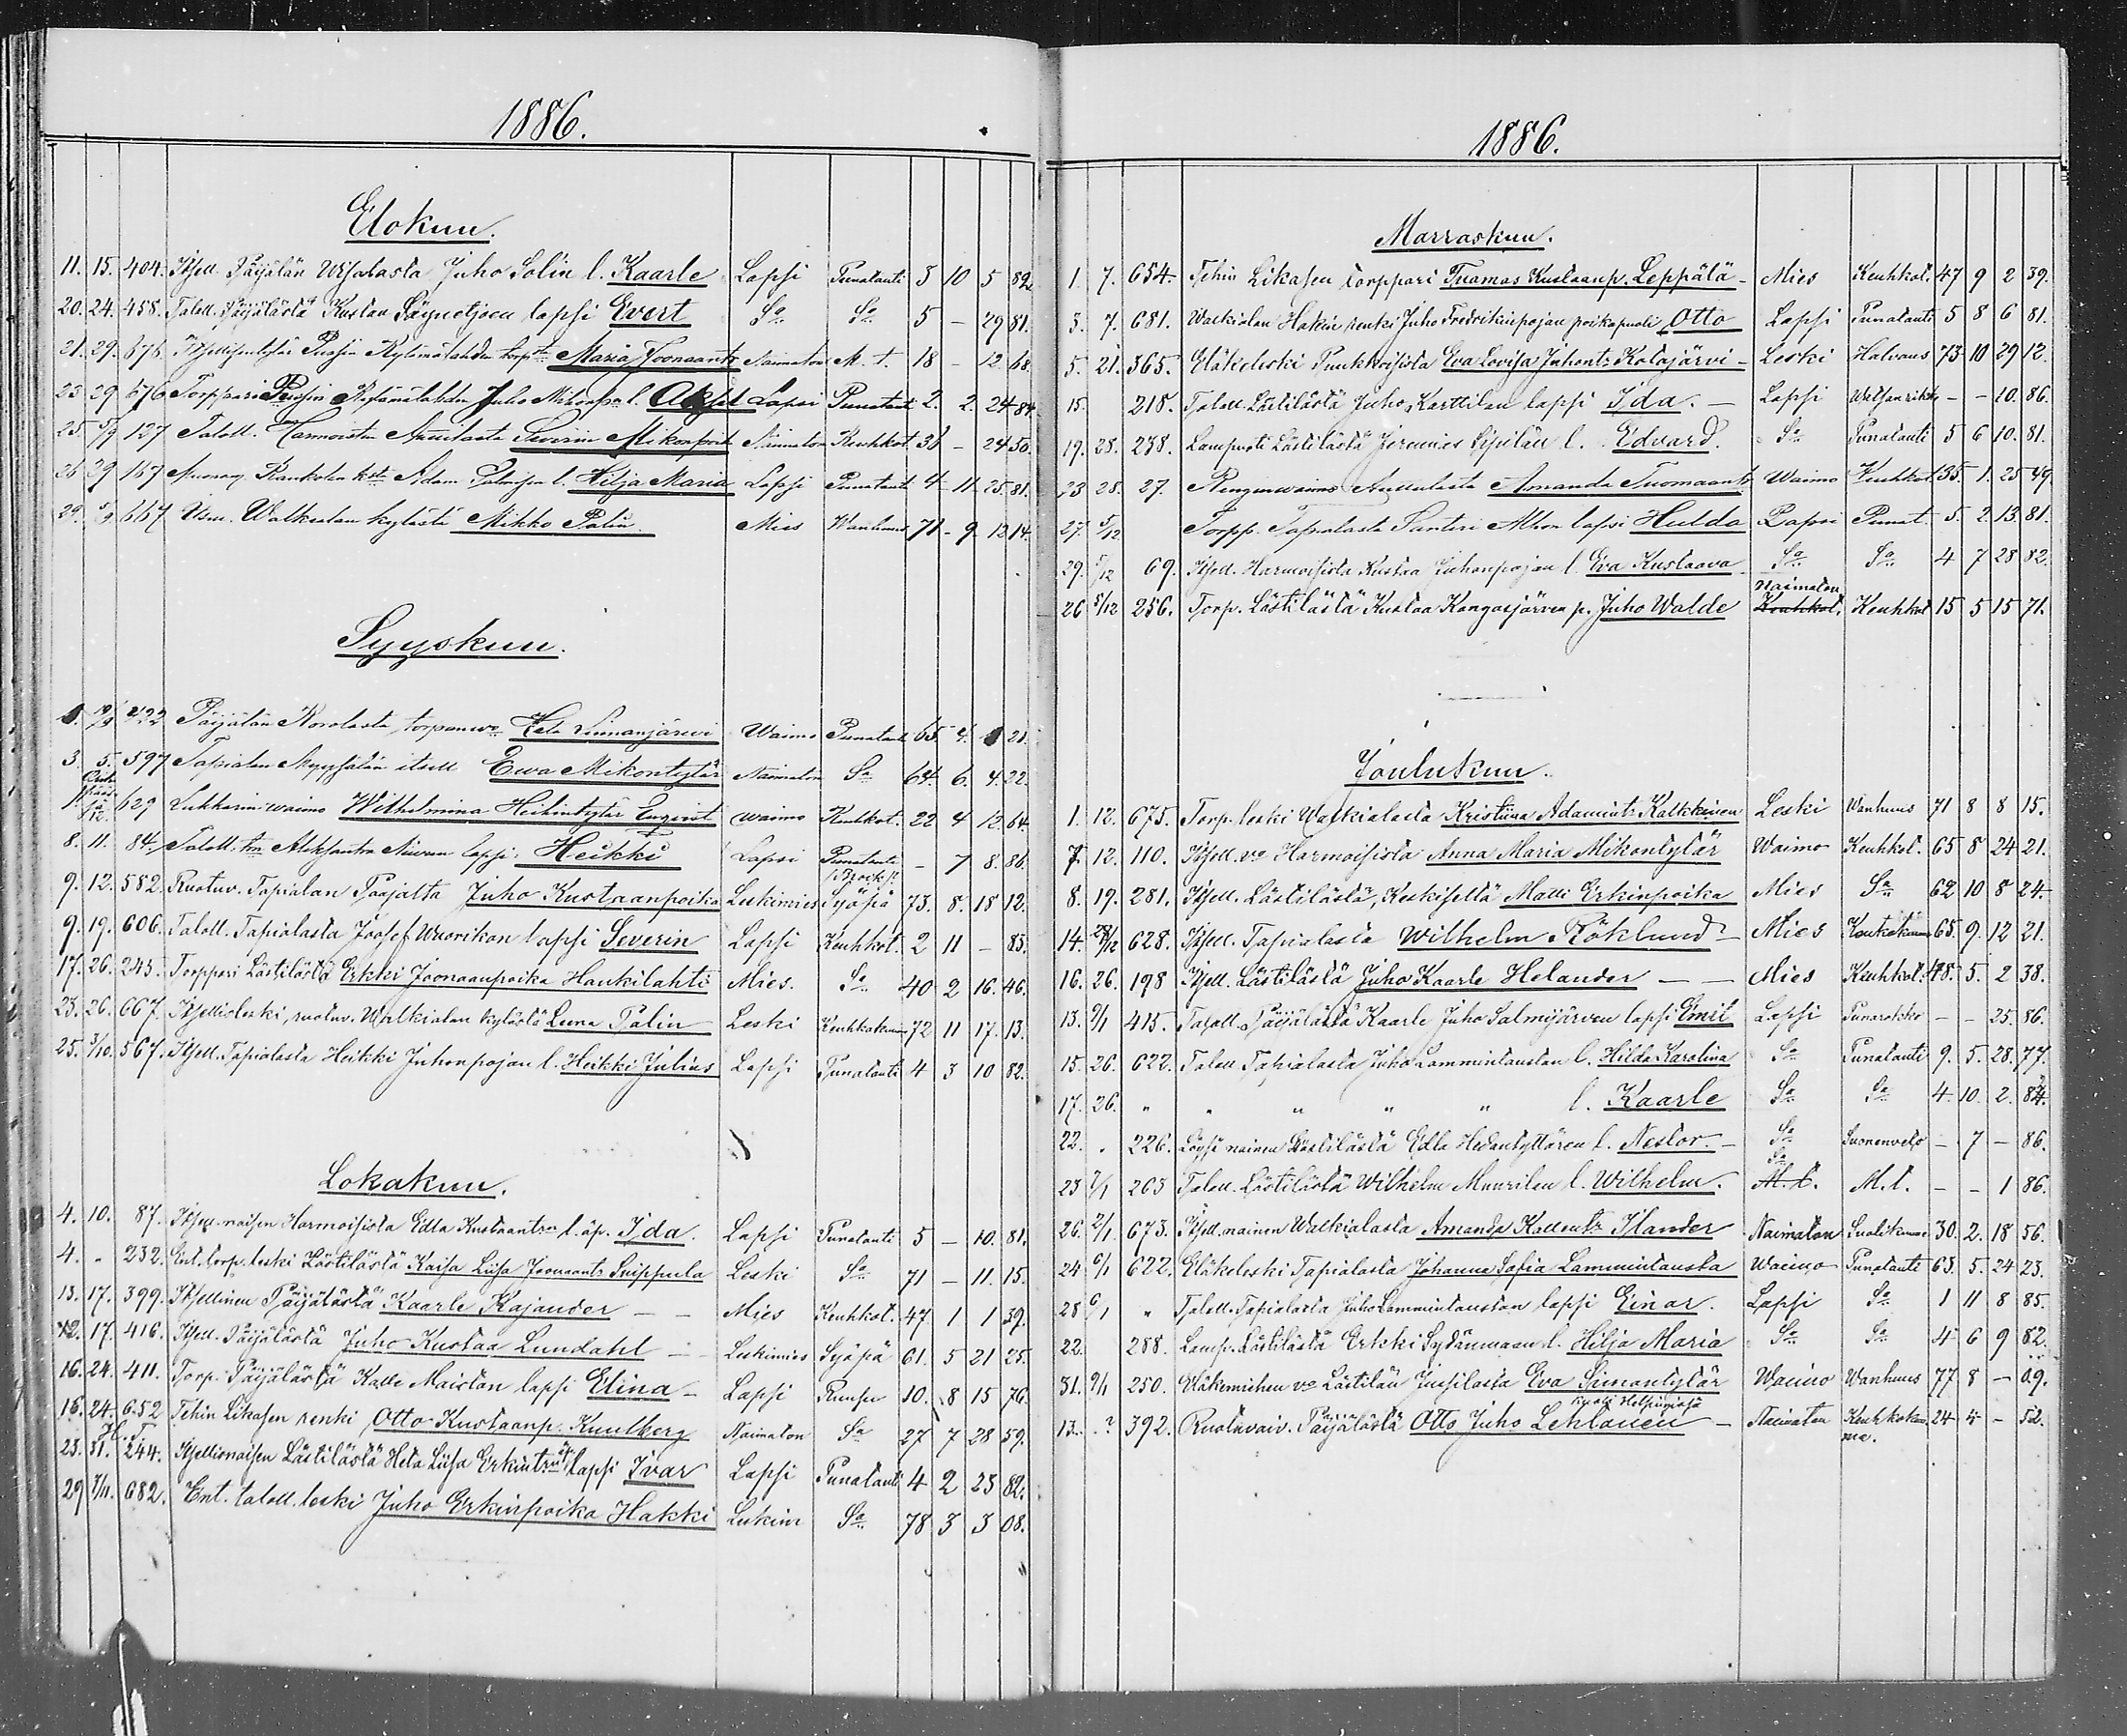 1886.
Elokuu.
11. 15. 404. Itsell. Päijälän Uhsalasta Juho Solin l. Kaarle Lapsi Punatauti 3 10 5 82.
20. 24. 458. Taloll. Päijälästä Kustaa Säynetjoen lapsi Evert Lapsi So So 5 - 29 81.
21. 29. 676. Kylämälahden torp. Maria Joonaantr Naimaton M. t. 18 - 12 68.
23 29 676 Torppari Juho l. Aksel Lapsi Punataut 2. 2. 24 84.
25. 5/9 127 Taloll. Harmoisten Severin Mikonpoika Naimaton Keuhkot. 36 - 24 50.
26 29 167 Adam l. Hilja Maria Lapsi Punataut 4 - 11 - 25 81.
29. 5/9 667 Walkealan kylästä Mikko Palin Mies Wanhuus 71 - 9. 12 14.
Syyskuu.
1. 19/9 422 Päijälän Korolasta torpanwo Heta Linnanjärwi Waimo Punataut 65 4. 1 21.
3. 5. 597 Tapialan itsell Ewa Mikontytär Naimaton So 64. 6. 4. 22.
1. 629 Lukkarin waimo Wilhelmina Heikintytär Enqvist waimo Keuhkot. 22 4 12 64.
8. 11. 84. Taloll. Aleksantra lapsi Heikki Lapsi Punatauti - 7 8. 86.
9. 12. 582. Ruotuv. Tapialan Juho Kustaanpoika Leskimies Syöpä 73. 8. 18 12.
9. 19. 606. Taloll. Tapialasta Joosef Wuorikon lapsi Severin Lapsi Keuhkot. 2 11 - 83.
17. 26. 245. Torppari Lästilästä Erkki Joonaanpoika Haukilahti Mies. So 40 2 16. 46.
23. 26. 667. Itsellisleski, ruotuv. Walkialan kylästä Leena Palin Leski Keuhkokuum 72 11 17. 13.
25. 3/10. 567. Itsell. Tapialasta Heikki Juhonpojan l. Heikki Julius Lapsi Punatauti 4 3 10 82.
Lokakuu.
4. 10. 87. Itsell. naisen Harmoisista Edla Kustaantr l. äp. Ida. Lapsi Punatauti 5 - 10. 81.
4. " 232. Ent. torp. leski Lästilästä Kaisa Liisa Joonaantr Snippula Leski So 71 - 11. 15.
13. 17. 399. Itsellinen Päijälästä Kaarle Kajander - - Mies Keuhkot. 47 1 1 39.
12. 17. 416. Itsell. Päijälästä Juho Kustaa Lundahl - Leskimies Syöpä 61. 5 21 25.
16. 24. 411. Torp. Päijälästä Kalle Maistan lapsi Elina - Lapsi 10. 8 15 76.
16. 24. 652 Tehin Likasen renki Otto Kustaanp. Kuulberg Naimaton So 27 7 28 59.
23. 31. 244. Itsellisnaisen Lästilästä Heta Liisa Erkintr äp. lapsi Ivar Lapsi Punatauti 4 2 23 82.
29 7/11. 682. Ent. taloll. leski Juho Erkinpoika Hakki Leskim So 78 3 3 08.
1886.
Marraskuu.
1. 7. 654. Tehin Likasen torppari Tuomas Kustaanp. Leppälä - Mies Keuhkot. 47 9 2 39.
3. 7. 681. Walkialan Hakin renki Juho Fredrikinpojan poikapuoli Otto Lapsi Punatauti 5 8 6 81.
5. 21. 365. Eläkeleski Puukkoisista Eva Lovisa Juhontr Kotajärvi - Leski Halvaus 73 10 29 12.
15. 218. Taloll. Lästilästä Juho Karttilan lapsi Ida. - Lapsi - - 10. 86.
19. 28. 238. Lampuoti Lästilästä Jeremies Sipilän l. Edvard. So Punatauti 5 6 10. 81.
23 28. 27. Renginwaimo Amanda Tuomaantr Waimo Keuhkot 35. 1. 25 49
27. 5/12 Torpp. Tapialasta Santeri Alhon lapsi Hulda Lapsi Punat. 5. 2. 13. 81.
29. 5/12 69. Itsell. Harmoisista Kustaa Juhonpojan l. Eva Kustaava So So 4 7 28 82.
Naimaton
26 5/12 256. Torp. Lästilästä Kustaa Kangasjärven p. Juho Walde Keuhkot. Keuhkot 15 5 15 71.
Joulukuu.
1. 12. 675. Torp. leski Walkialasta Kristiina Adamintr Kalkkinen Leski Wanhuus 71 8 8 15.
7. 12. 110. Itsell. vo Harmoisista Anna Maria Mikontytär Waimo Keuhkot. 65 8 24 21.
8. 19. 281. Itsell. Lästilästä, Keskiseltä Matti Erkinpoika Mies So 62 10 8 24.
14. 28/12 628. Itsell. Tapialasta Wilhelm Röklund - Mies 65. 9. 12 21.
16. 26. 198 Itsell. Lästilästä Juho Kaarle Helander - - Mies Keuhkot. 48. 5. 2 38.
13. 9/1 415. Taloll. Päijälästä Kaarle Juho Salmijärven lapsi Emil Lapsi Punarokko - - 25. 86.
15. 26. 622. Taloll. Tapialasta Juho Lammintaustan l. Hilda Karolina So Punatauti 9. 5. 28. 77.
17. 26. " " " " " l. Kaarle So So 4. 10. 2. 84.
22. " 226. Löysä nainen Lästilästä Edla Hedantyttären l. Nestor. - So Suonenveto - 7 - 86.
23 2/1 263 Taloll. Lästilästä Wilhelm Muurilan l. Wilhelm. So M. t. M. t. - - 1 86.
26. 2/1 673. Itsell. nainen Walkialasta Amanda Kallentr Ilander Naimaton 30. 2. 18 56.
24 6/1 622. Eläkeleski Tapialasta Johanna Sofia Lammintausta Waimo Punatauti 63. 5. 24 23.
28 6/1 " Taloll. Tapialasta Juho Lammintaustan lapsi Einar. Lapsi So 1 11 8 85.
22. 288. Lamp. Lästilästä Erkki Sydänmaan l. Hilja Maria So So 4 6 9 82.
31. 9/1 250. Eläkemiehen vo Lästilän Jussilasta Eva Simontytär Waimo Wanhuus 77 8 - 09.
kuoli Helsingissä
13. ? 392. Ruotuvaiv. Päijälästä Otto Juho Lehtanen - Naimaton Keuhkokuume. 24 4 - 52.